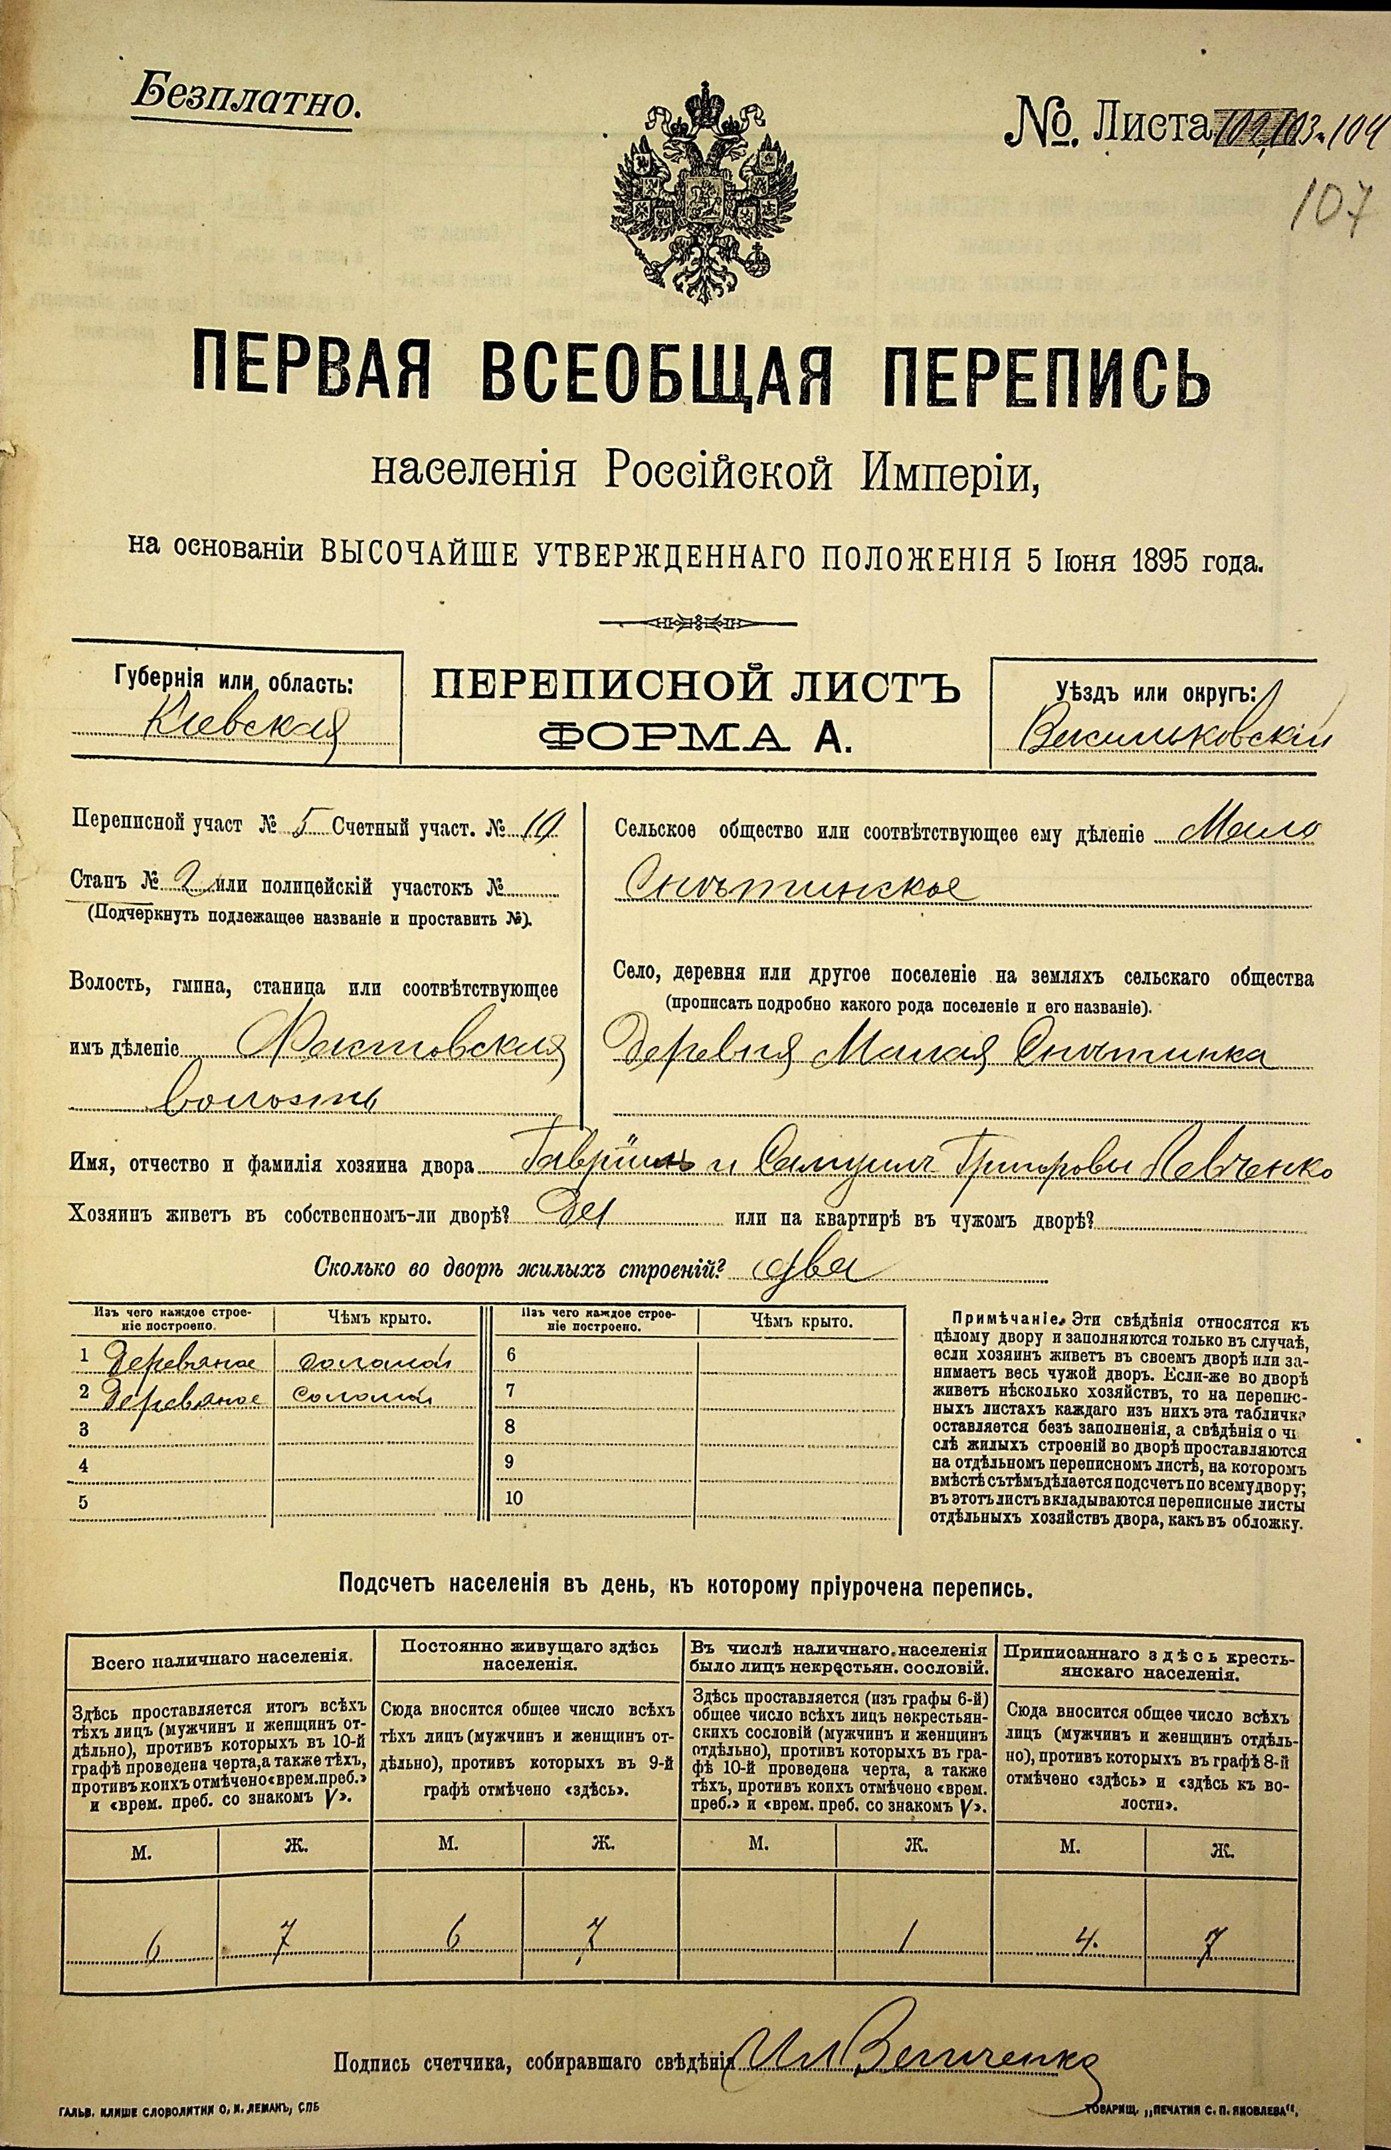 Безплатно.
№. Листа 103 и 104
107
ПЕРВАЯ ВСЕОБЩАЯ ПЕРЕПИСЬ
населенія Россійской Имперіи,
на основаніи ВЫСОЧАЙШЕ УТВЕРЖДЕННАГО ПОЛОЖЕНІЯ 5 Іюня 1895 года.
Губернія или область:
Кіевская
ПЕРЕПИСНОЙ ЛИСТЪ
ФОРМА А.
Уѣздъ или округъ:
Васильковскій
Переписной участ № 5 Счетный участ. № 10
Станъ № 2 или полицейскій участокъ №
(Подчеркнуть подлежащее названіе и проставить №).
Волость, гмина, станица или соотвѣтствующее
имъ дѣленіе Фастовская
волость
Сельское общество или соотвѣтствующее ему дѣленіе Мало
Снѣтинское
Село, деревня или другое поселеніе на земляхъ сельскаго общества
(прописать подробно какого рода поселеніе и его названіе).
Деревня Малая Снѣтинка
Имя, отчество и фамилія хозяина двора Гавріилъ и Самуилъ Григоровы Левченко
Хозяинъ живетъ въ собственномъ-ли дворѣ? Да или на квартирѣ въ чужомъ дворѣ?
Сколько во дворѣ жилыхъ строеній? два
Изъ чего каждое строе-
ніе построено.
Чѣмъ крыто.
Изъ чего каждое строе-
ніе построено.
Чѣмъ крыто.
1 Деревяное соломой 6
2 Деревяное соломой 7
3 8
4 9
5 10
Примѣчаніе. Эти свѣдѣнія относятся къ
цѣлому двору и заполняются только въ случаѣ,
если хозяинъ живетъ въ своемъ дворѣ или за-
нимаетъ весь чужой дворъ. Если-же во дворѣ
живетъ нѣсколько хозяйствъ, то на перепис-
ныхъ листахъ каждаго изъ нихъ эта табличка
оставляется безъ заполненія, а свѣдѣнія о чи
слѣ жилыхъ строеній во дворѣ проставляются
на отдѣльномъ переписномъ листѣ, на которомъ
вмѣстѣ съ тѣмъ дѣлается подсчетъ по всему двору;
въ этотъ листъ вкладываются переписные листы
отдѣльныхъ хозяйствъ двора, какъ въ обложку.
Подсчетъ населенія въ день, къ которому пріурочена перепись.
Всего наличнаго населенія.
Здѣсь проставляется итогъ всѣхъ
тѣхъ лицъ (мужчинъ и женщинъ от-
дѣльно), противъ которыхъ въ 10-й
графѣ проведена черта, а также тѣхъ,
противъ коихъ отмѣчено «врем. преб.»
и «врем. преб. со знакомъ V».
Постоянно живущаго здѣсь
населенія.
Сюда вносится общее число всѣхъ
тѣхъ лицъ (мужчинъ и женщинъ от-
дѣльно), противъ которыхъ въ 9-й
графѣ отмѣчено «здѣсь».
Въ числѣ наличнаго населенія
было лицъ некрестьян. сословій.
Здѣсь проставляется (изъ графы 6-й)
общее число всѣхъ лицъ некрестьян-
скихъ сословій (мужчинъ и женщинъ
отдѣльно), противъ которыхъ въ гра-
фѣ 10-й проведена черта, а также
тѣхъ, противъ коихъ отмѣчено «врем.
преб.» и «врем. преб. со знакомъ V».
Приписаннаго здѣсь кресть-
янскаго населенія.
Сюда вносится общее число всѣхъ
лицъ (мужчинъ и женщинъ отдѣль-
но), противъ которыхъ въ графѣ 8-й
отмѣчено «здѣсь» и «здѣсь къ во-
лости».
М. Ж. М. Ж. М. Ж. М. Ж.
6 7 6 7 1 4. 7
Подпись счетчика, собиравшаго свѣдѣнія Ил Величенко
ГАЛЬВ. КЛИШЕ СЛОВОЛИТНИ О. И. ЛЕМАНЪ, СПБ
ТОВАРИЩ. „ПЕЧАТНЯ С. П. ЯКОВЛЕВА“.